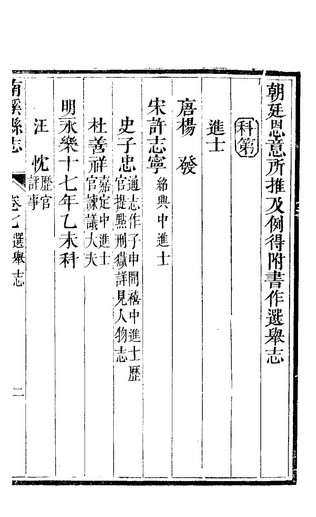 朝廷恩意所推及例得附書作選舉志
科第
進士
唐楊發
宋許志寧 紹興中進士
史子忠 通志作子申開禧中進士歷
官提點刑獄詳見人物志
杜善祥 嘉定中進士
官諫議大夫
明永樂十七年乙未科
汪忱 歷官
評事
南溪縣志 卷七 選舉志 二